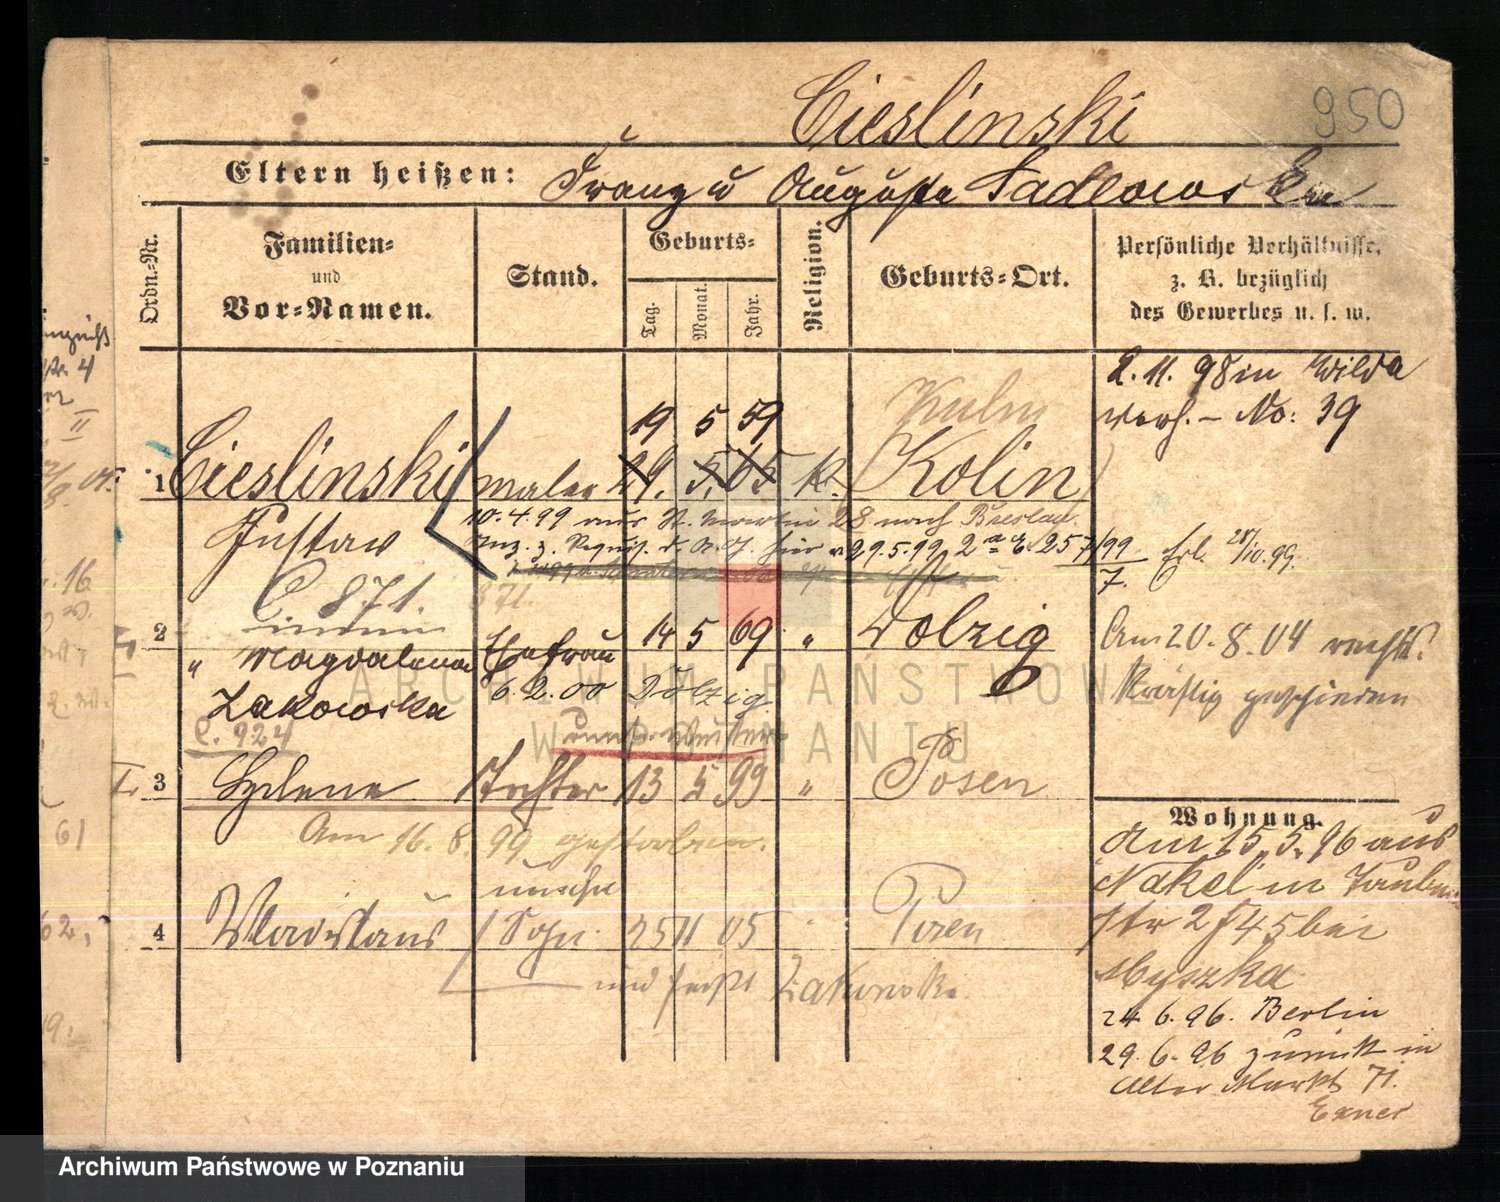 Cieslinski
950
Eltern heißen: Franz u Auguste Sadlowski
Ordn.-Nr.
Familien- und Vor-Namen.
Stand.
Geburts-
Tag.
Monat.
Jahr.
Religion.
Geburts-Ort.
Persönliche Verhältnisse,
z. B. bezüglich
des Gewerbes u. s. w.
2. 11. 98 in Wilda
verh. - No: 39
19 5 59
Kulm
1 Cieslinski Maler 29. 5. 65 k. Kolin
Gustav
10. 4. 99 aus St. Martin 28 nach Breslau.
29.5.99
257/99
7.
Erl. 28/10.99.
C 871.
371.
2
Ehefrau 14 5 69 " Dolzig
" Magdalena
Zakowska
6. 2. 00 Dolzig
C. 924
Am 20. 8. 04 rechts-
kräftig geschieden
3 Helene Tochter 13 5 99 " Posen
Am 16. 8. 99 gestorben.
unehe
4 Wladislaus Sohn 25 11 05 Posen
und heißt Zakowski.
Wohnung.
Am 15. 5. 96 aus
Nakel in Tauben
str 2 bei
Myszka
24 6. 96. Berlin
29. 6. 96 zurück in
Alter Markt 71.
Exner
16.
61
62,
ARCHIWUM PAŃSTWOWE
W POZNANIU
Archiwum Państwowe w Poznaniu